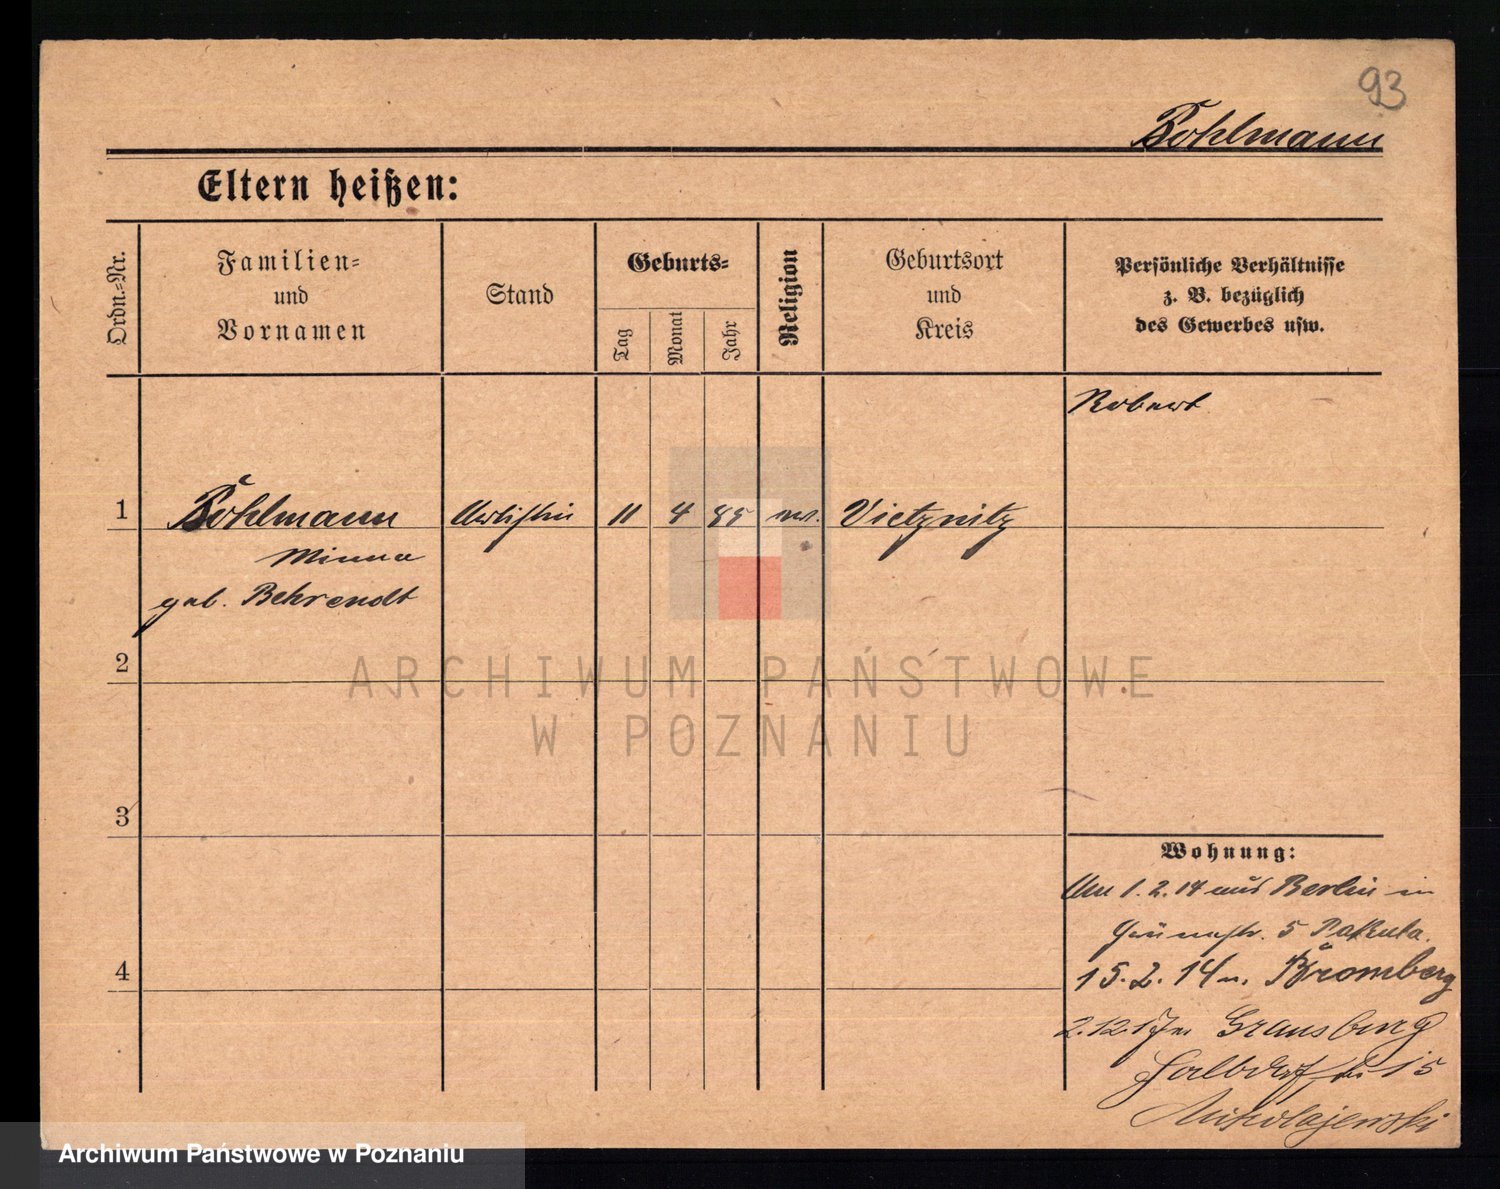 93
Pohlmann
Eltern heißen:
Ordn.-Nr.
Familien-
und
Vornamen
Stand
Geburts-
Tag
Monat
Jahr
Religion
Geburtsort
und
Kreis
Persönliche Verhältnisse
z. B. bezüglich
des Gewerbes usw.
Robert
1
Pohlmann
Artistin
11
4
85
ev.
Vietznitz
Minna
geb. Behrendt
2
ARCHIWUM PAŃSTWOWE
W POZNANIU
3
Wohnung:
Am 1.2.14 aus Berlin in
5
4
15.2.14 n. Bromberg
2.12.17
15
Nikolajewski
Archiwum Państwowe w Poznaniu